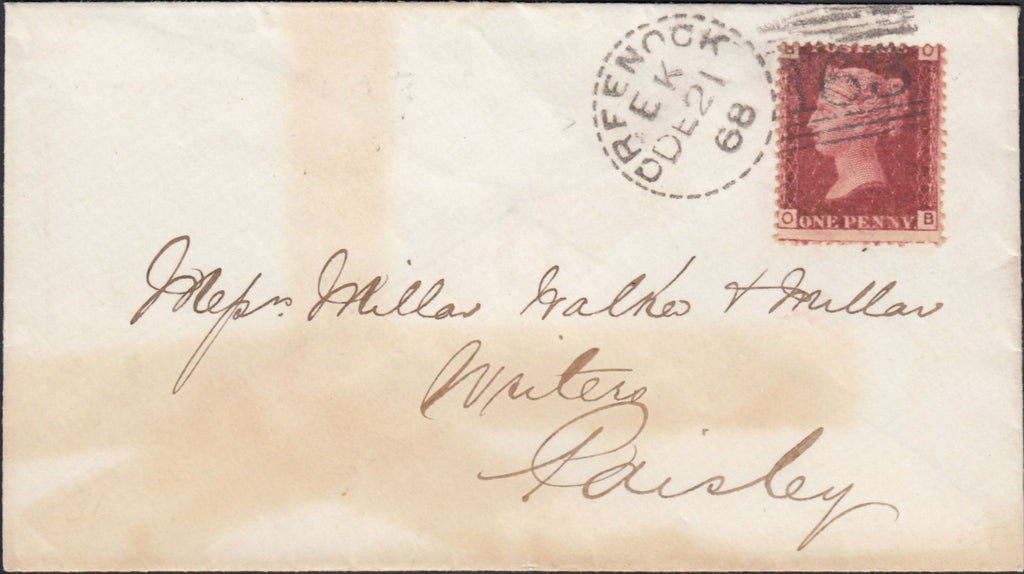 GREENOCK
E K
DE 21
68
163
B O
O ONE PENNY. B
Messrs. Millar Walker & Millar
Writers
Paisley